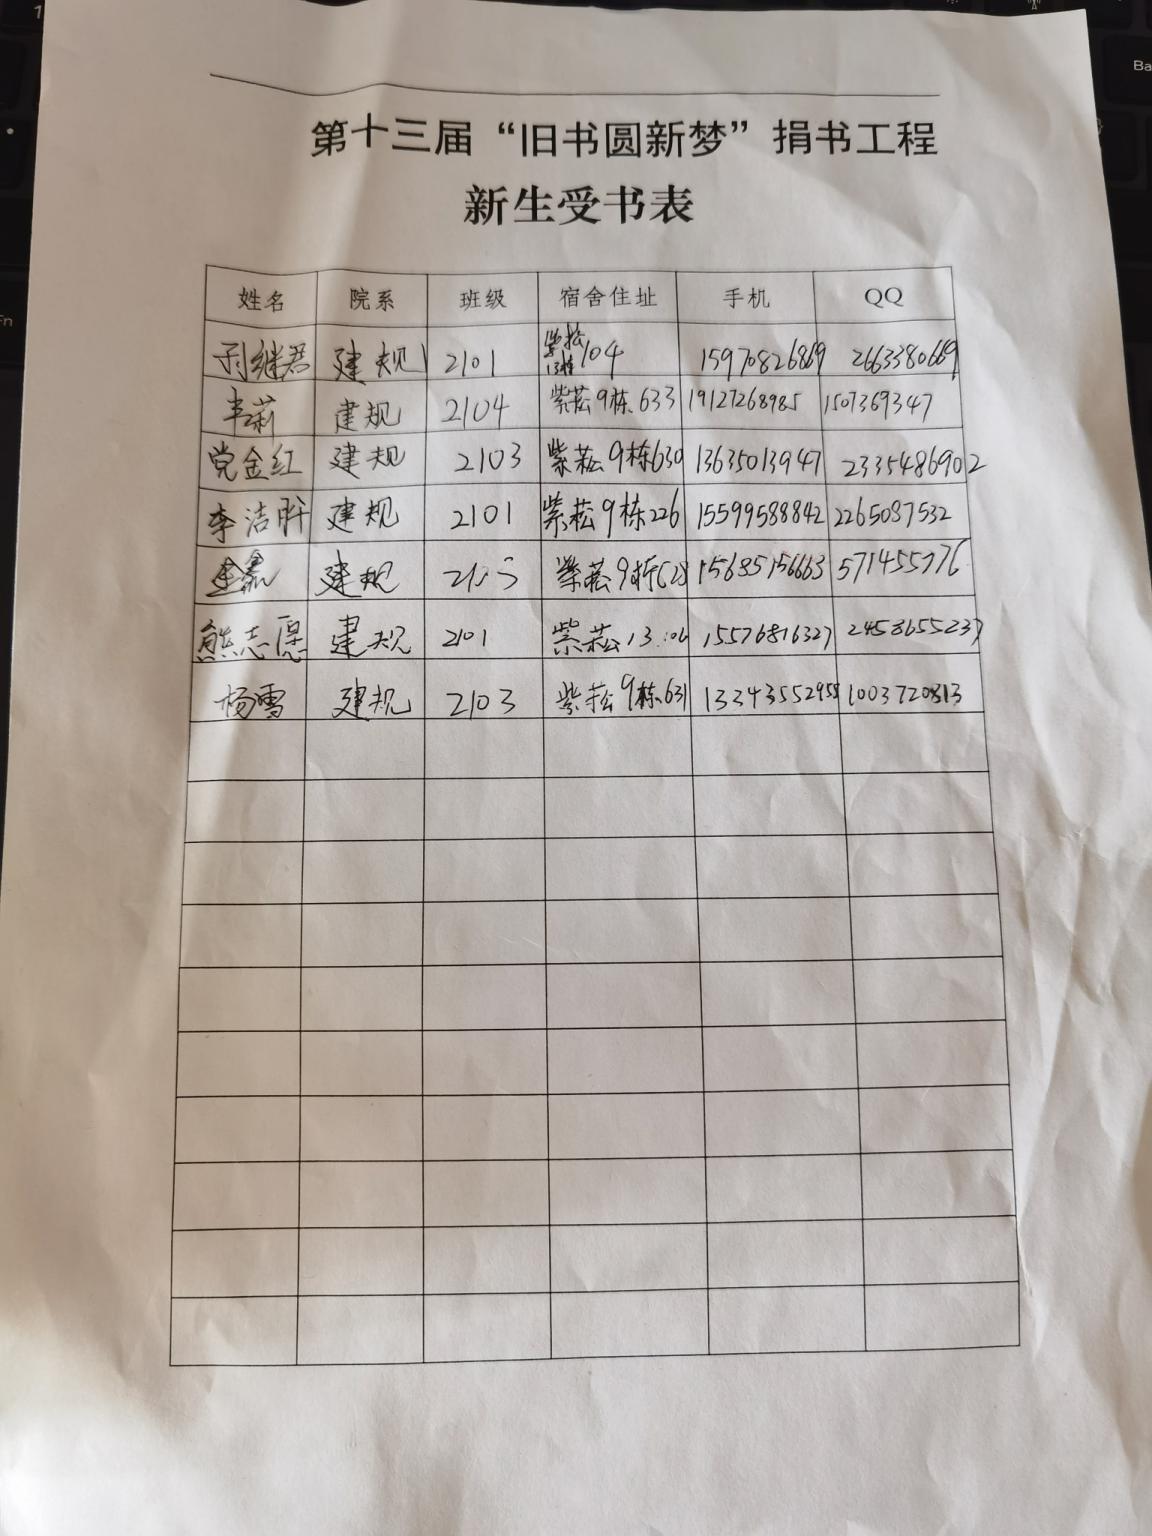 第十三届“旧书圆新梦”捐书工程
新生受书表
姓名 院系 班级 宿舍住址 手机 QQ
继君 建规 2101 紫菘13栋104 15970826869 2663380669
韦莉 建规 2104 紫菘9栋633 19127268985 1507369347
党金红 建规 2103 紫菘9栋630 13635013947 2335486902
李洁 建规 2101 紫菘9栋226 15599588842 2265087532
建规 紫菘9栋 15685156663 571455776
熊志愿 建规 2101 紫菘13 15576816327 2458655237
杨雪 建规 2103 紫菘9栋631 13343552958 1003720813